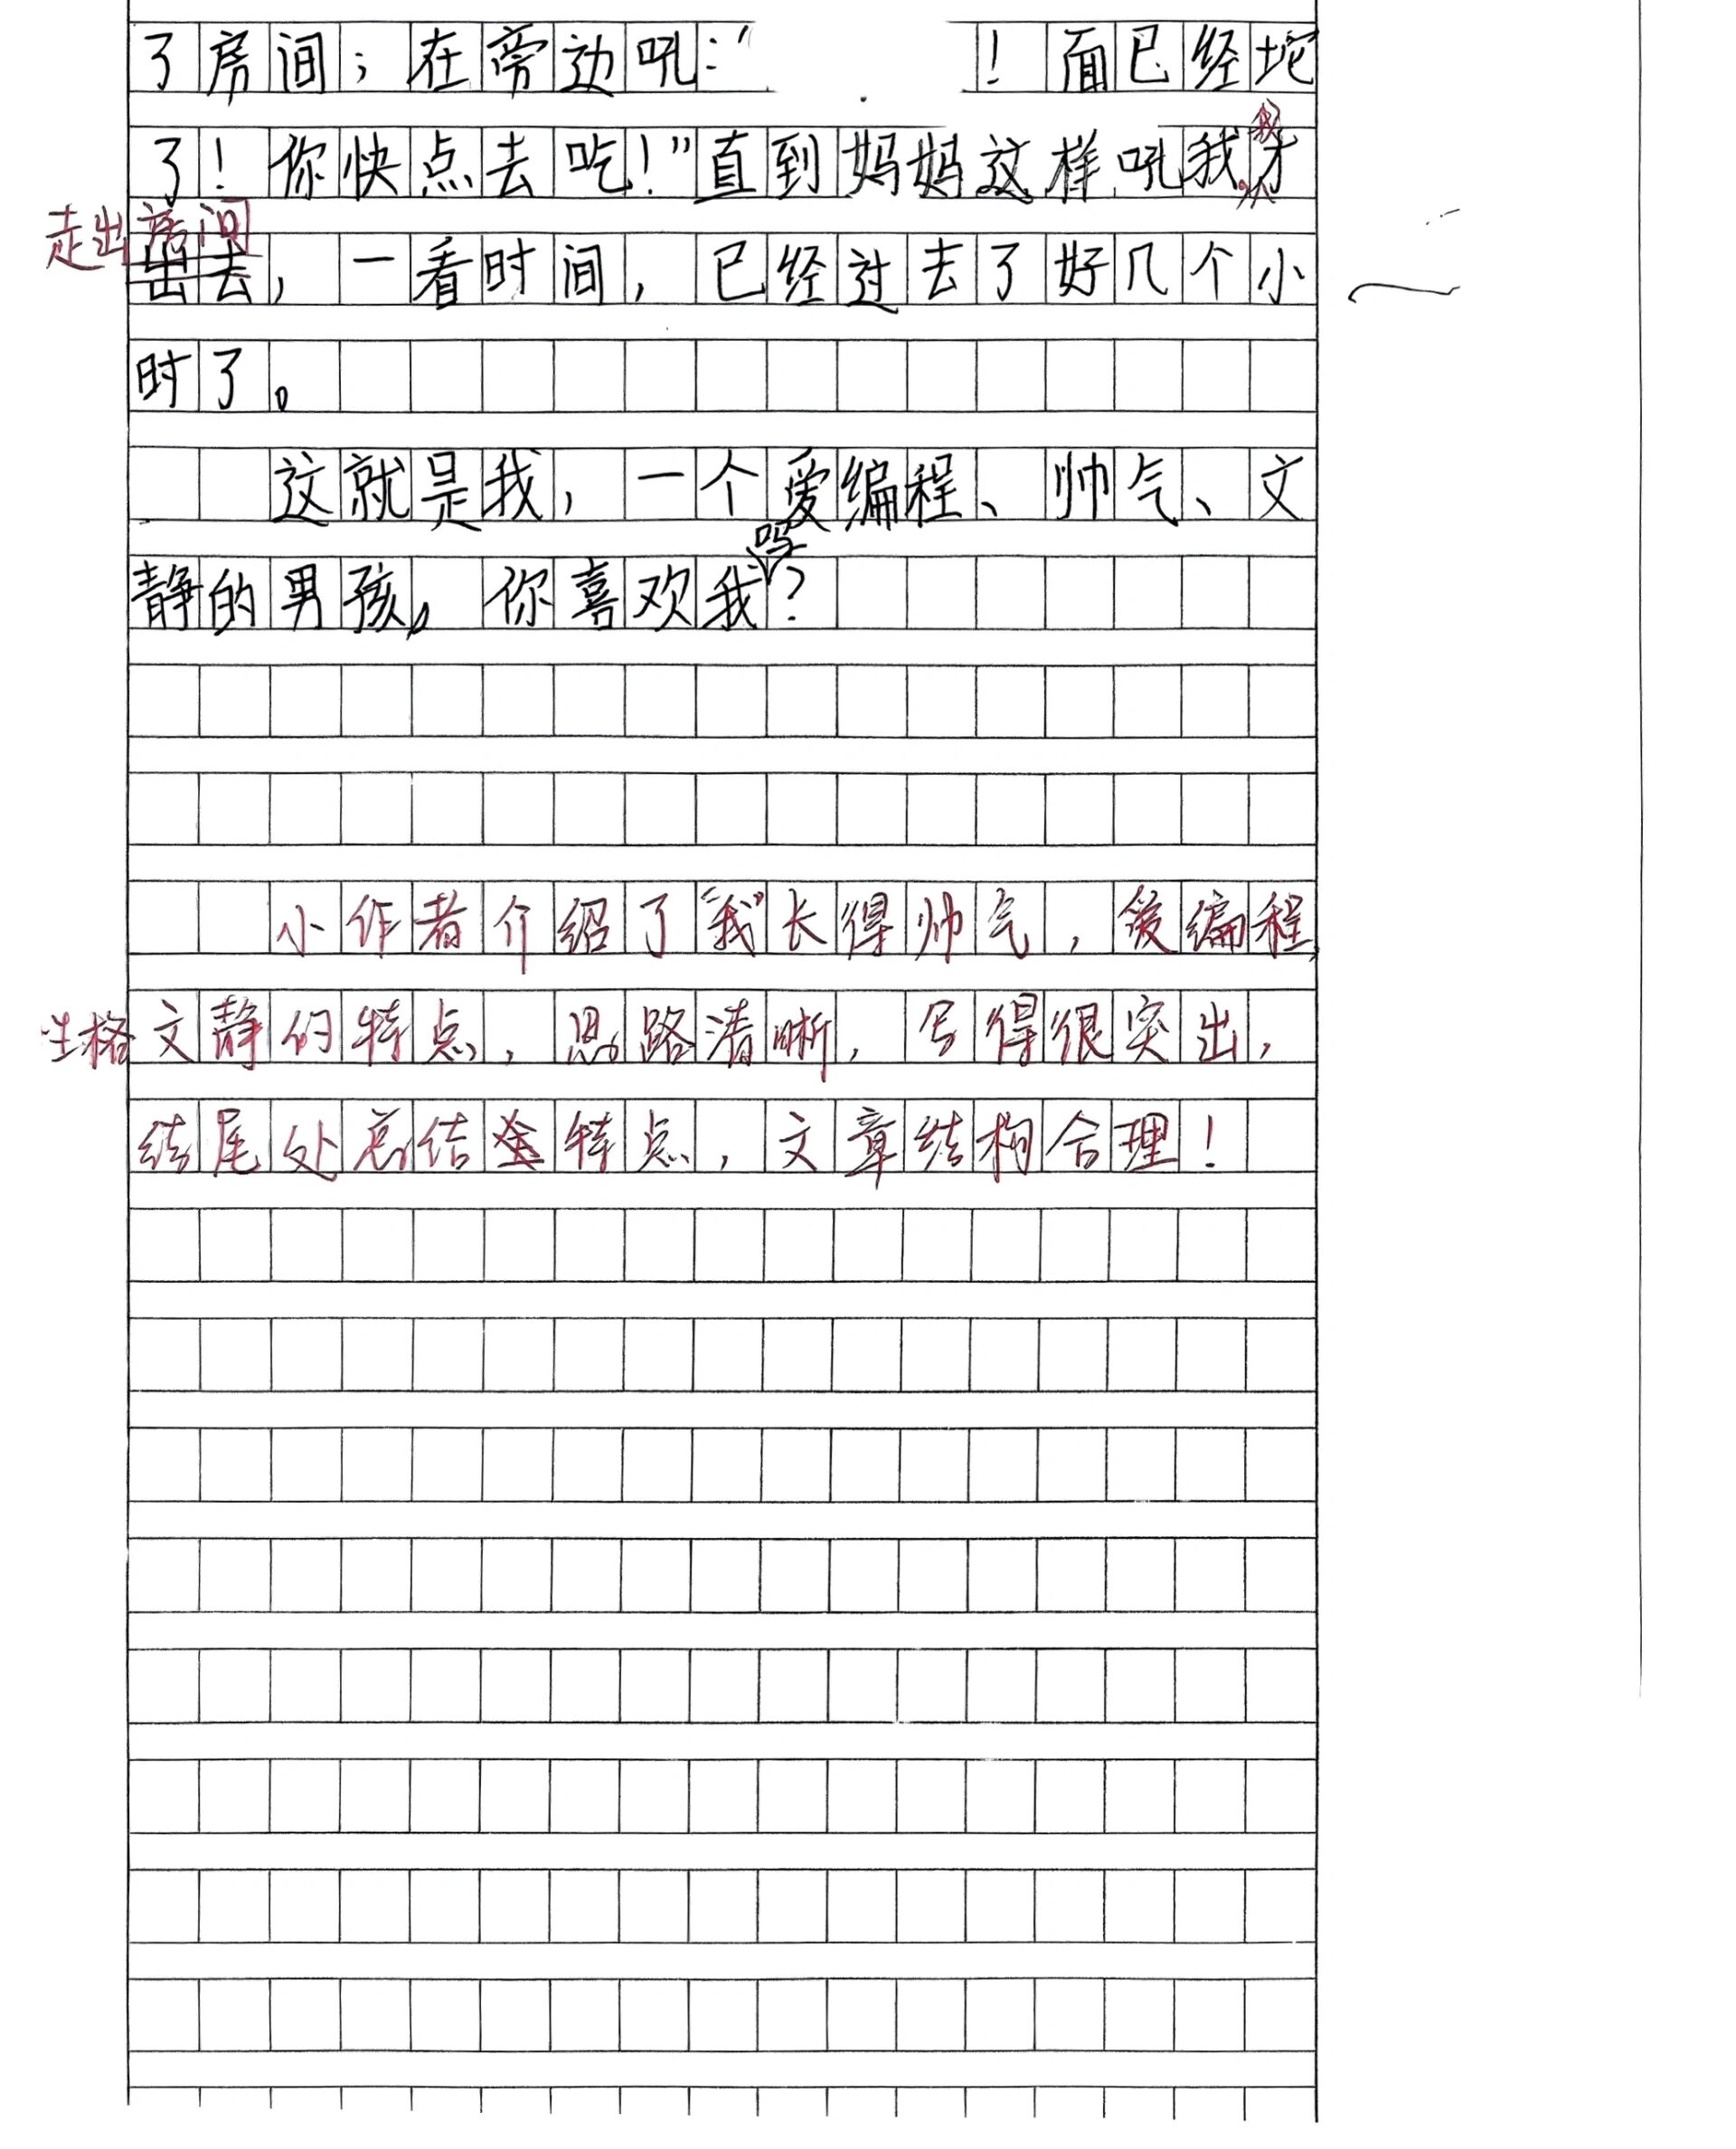 了房间；在旁边吼：“ ！面已经坨
我
了！你快点去吃！”直到妈妈这样吼我，才
走出房间
出去，一看时间，已经过去了好几个小
时了。
这就是我，一个爱编程、帅气、文
吗
静的男孩。你喜欢我？
小作者介绍了“我”长得帅气，爱编程，
性格文静的特点，思路清晰，写得很突出，
结尾处总结全特点，文章结构合理！